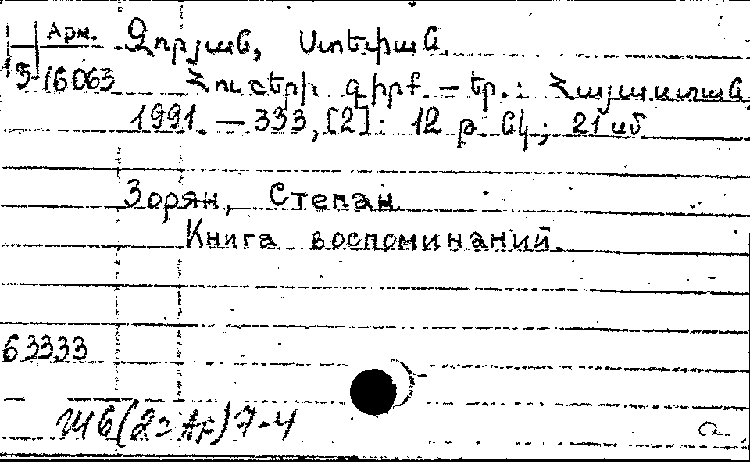 Арм. Զորյան, Ստեփան
13 16063 Հուշերի գիրք. – Եր.: Հայաստան
1991. – 333,[2]: 12 թ. նկ; 21 սմ
Зорян, Степан
Книга воспоминаний.
63333
Ш6(2=Ар)7-4
a